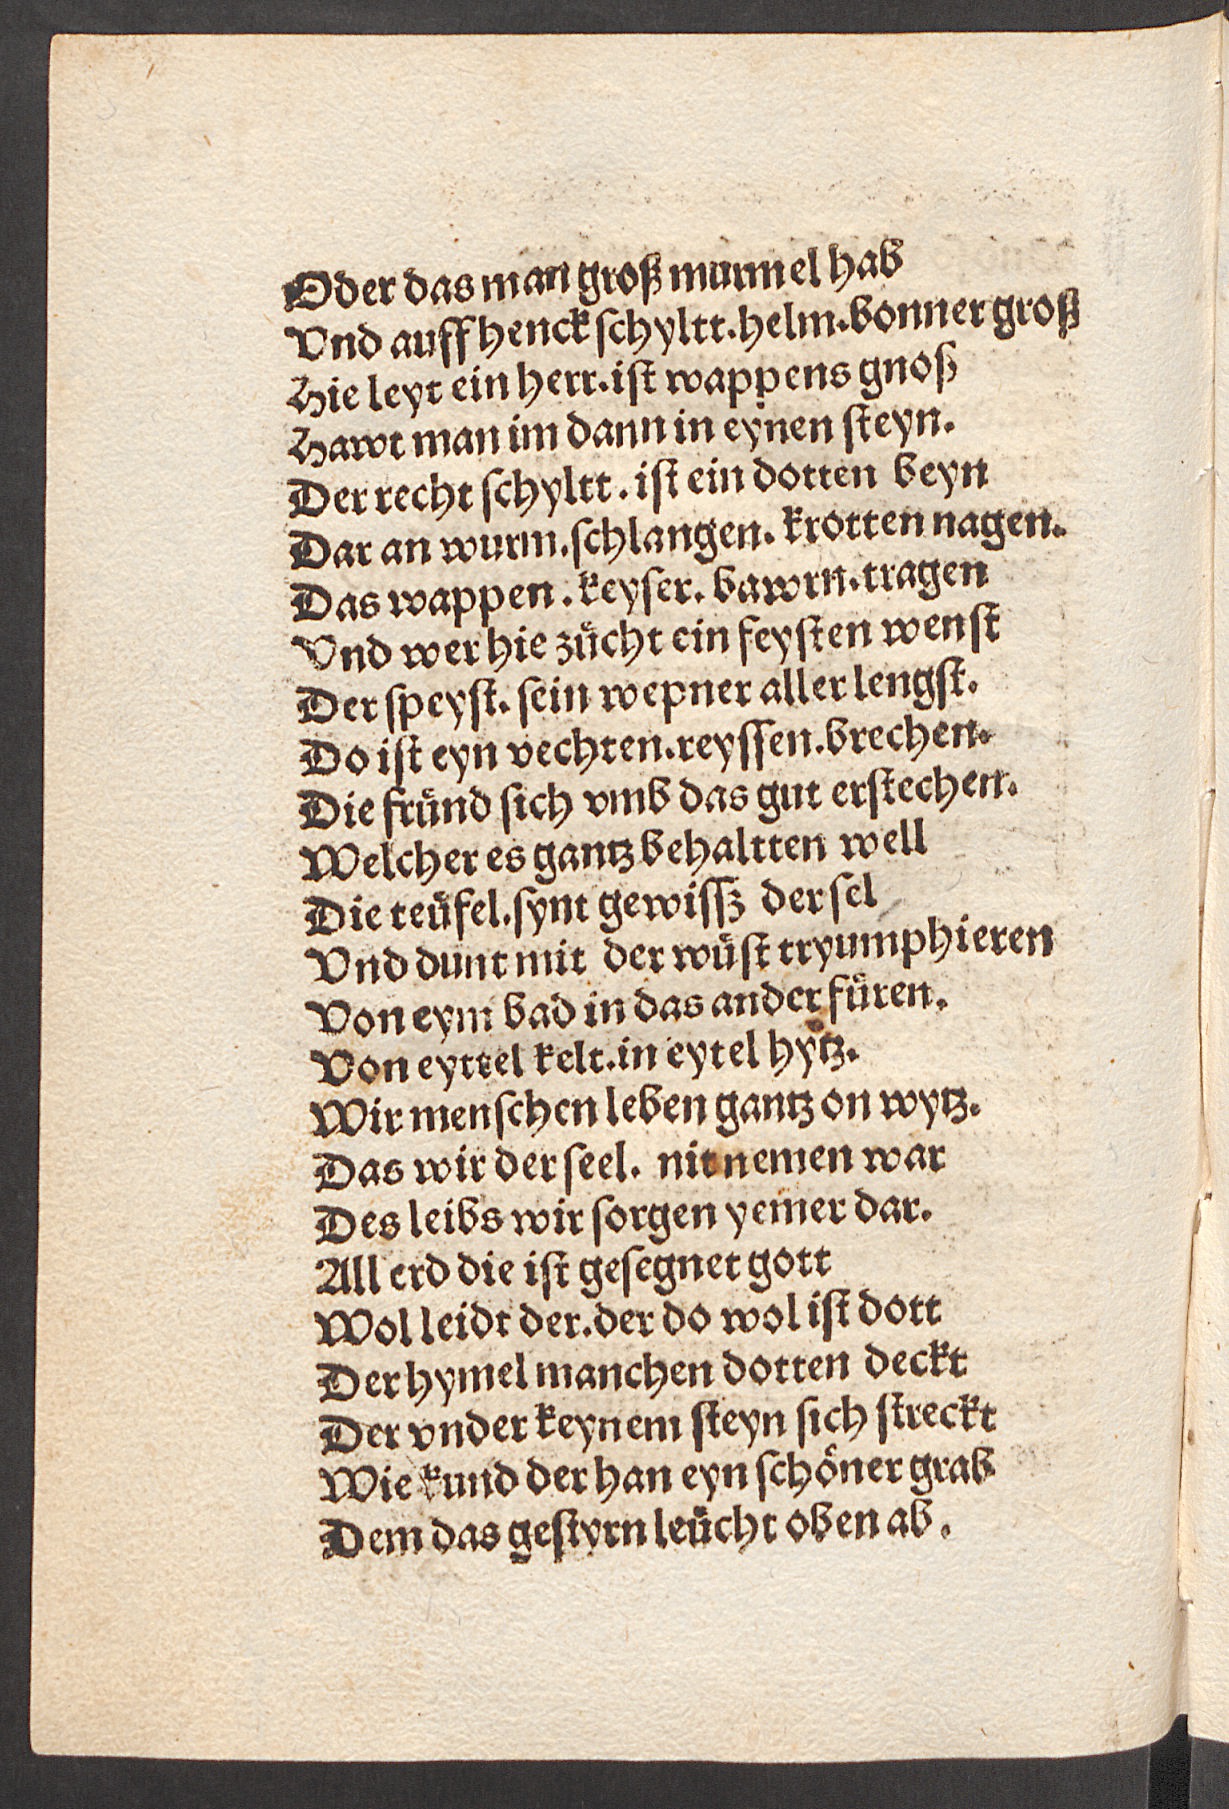 Oder das man groß murmel hab
Vnd auff henck schyltt. helm. bonner groß
Hie leyt ein herr. ist wappens gnoß
Hawt man im dann in eynen steyn.
Der recht schyltt. ist ein dotten beyn
Dar an wurm. schlangen. krotten nagen.
Das wappen. keyser. bawrn. tragen
Vnd wer hie zücht ein feysten wenst
Der speyst. sein wepner aller lengst.
Do ist eyn vechten. reyssen. brechen.
Die fründ sich vmb das gut erstechen.
Welcher es gantz behaltten well
Die teüfel. synt gewissz der sel
Vnd dunt mit der wüst tryumphieren
Von eym bad in das ander füren.
Von eyttel kelt. in eytel hytz.
Wir menschen leben gantz on wytz.
Das wir der seel. nit nemen war
Des leibs wir sorgen yemer dar.
All erd die ist gesegnet gott
Wol leidt der. der do wol ist dott
Der hymel manchen dotten deckt
Der vnder keynem steyn sich streckt
Wie kund der han eyn schöner grab
Dem das gestyrn leücht oben ab.